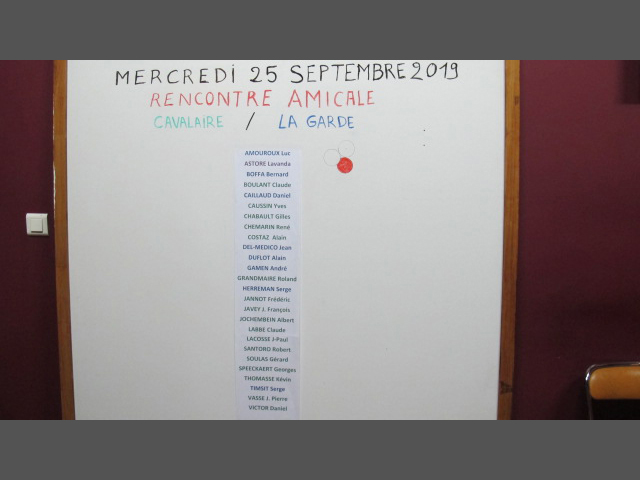 MERCREDI 25 SEPTEMBRE 2019
RENCONTRE AMICALE
CAVALAIRE / LA GARDE
AMOUROUX Luc
ASTORE Lavanda
BOFFA Bernard
BOULANT Claude
CAILLAUD Daniel
CAUSSIN Yves
CHABAULT Gilles
CHEMARIN René
COSTAZ Alain
DEL-MEDICO Jean
DUFLOT Alain
GAMEN André
GRANDMAIRE Roland
HERREMAN Serge
JANNOT Frédéric
JAVEY J. François
JOCHEMBEIN Albert
LABBE Claude
LACOSSE J-Paul
SANTORO Robert
SOULAS Gérard
SPEECKAERT Georges
THOMASSE Kévin
TIMSIT Serge
VASSE J. Pierre
VICTOR Daniel